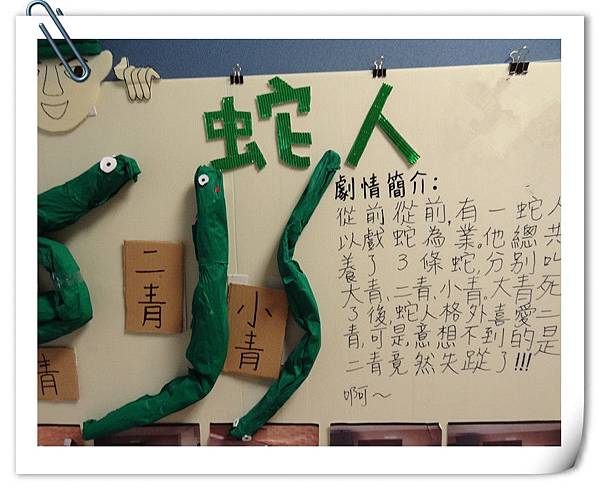 蛇人
劇情簡介：
從前從前，有一蛇人
以戲蛇為業。他總共
養了3條蛇，分別叫
大青、二青、小青。大青死
了後，蛇人格外喜愛二
青，可是，意想不到的是
二青竟然失蹤了!!!
啊～
二青
小青
青